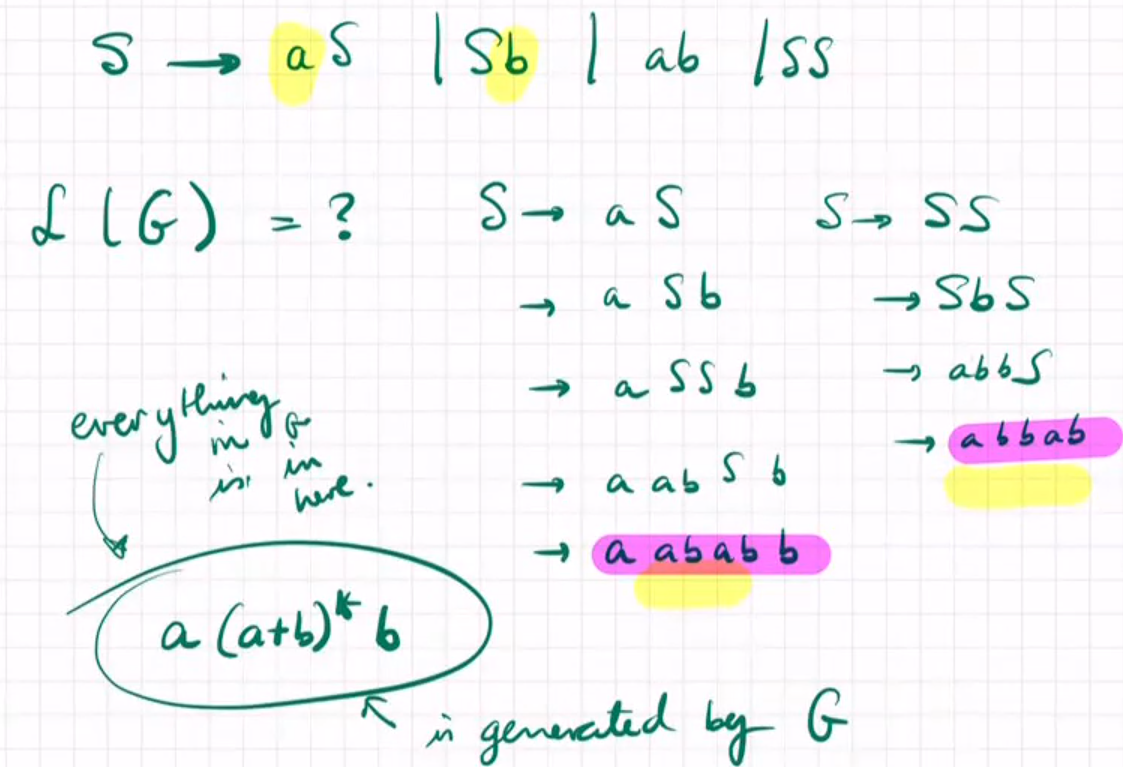 S → aS | Sb | ab | SS
L(G) = ?
S → aS
→ aSb
→ aSSb
→ aabSb
→ aababb
S → SS
→ SbS
→ abbS
→ abbab
everything
in G
is in
here.
a(a+b)*b
is generated by G